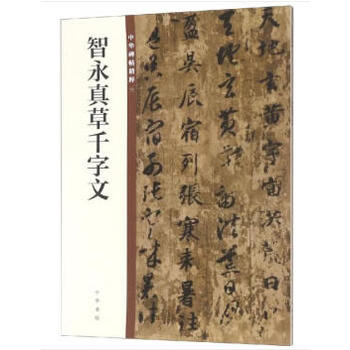 智永真草千字文
中华碑帖精粹
中华书局
天地玄黃宇宙洪荒
天地玄黃宇宙洪荒日月
盈昃辰宿列張寒來暑往
昃辰宿列張寒來暑往